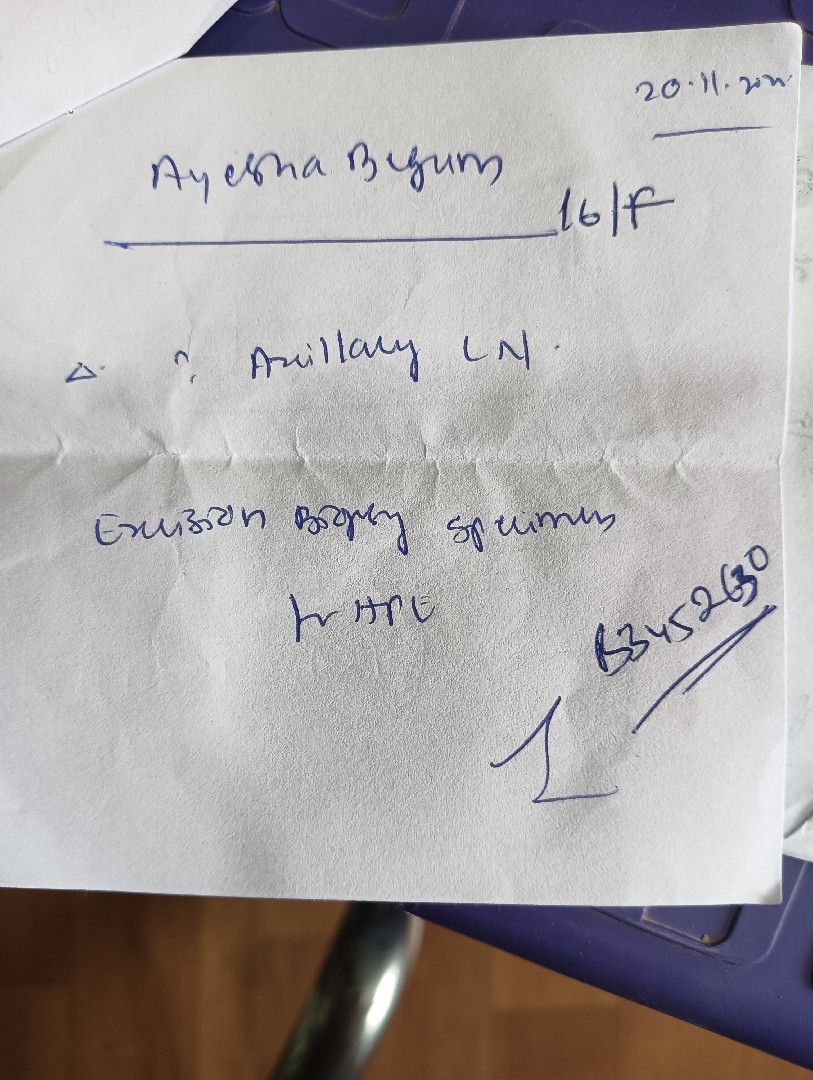 20.11.
Ayesha Begum
16/F
Δ. ? Axillary LN.
Excision Biopsy specimen
for HPE
63452630
1